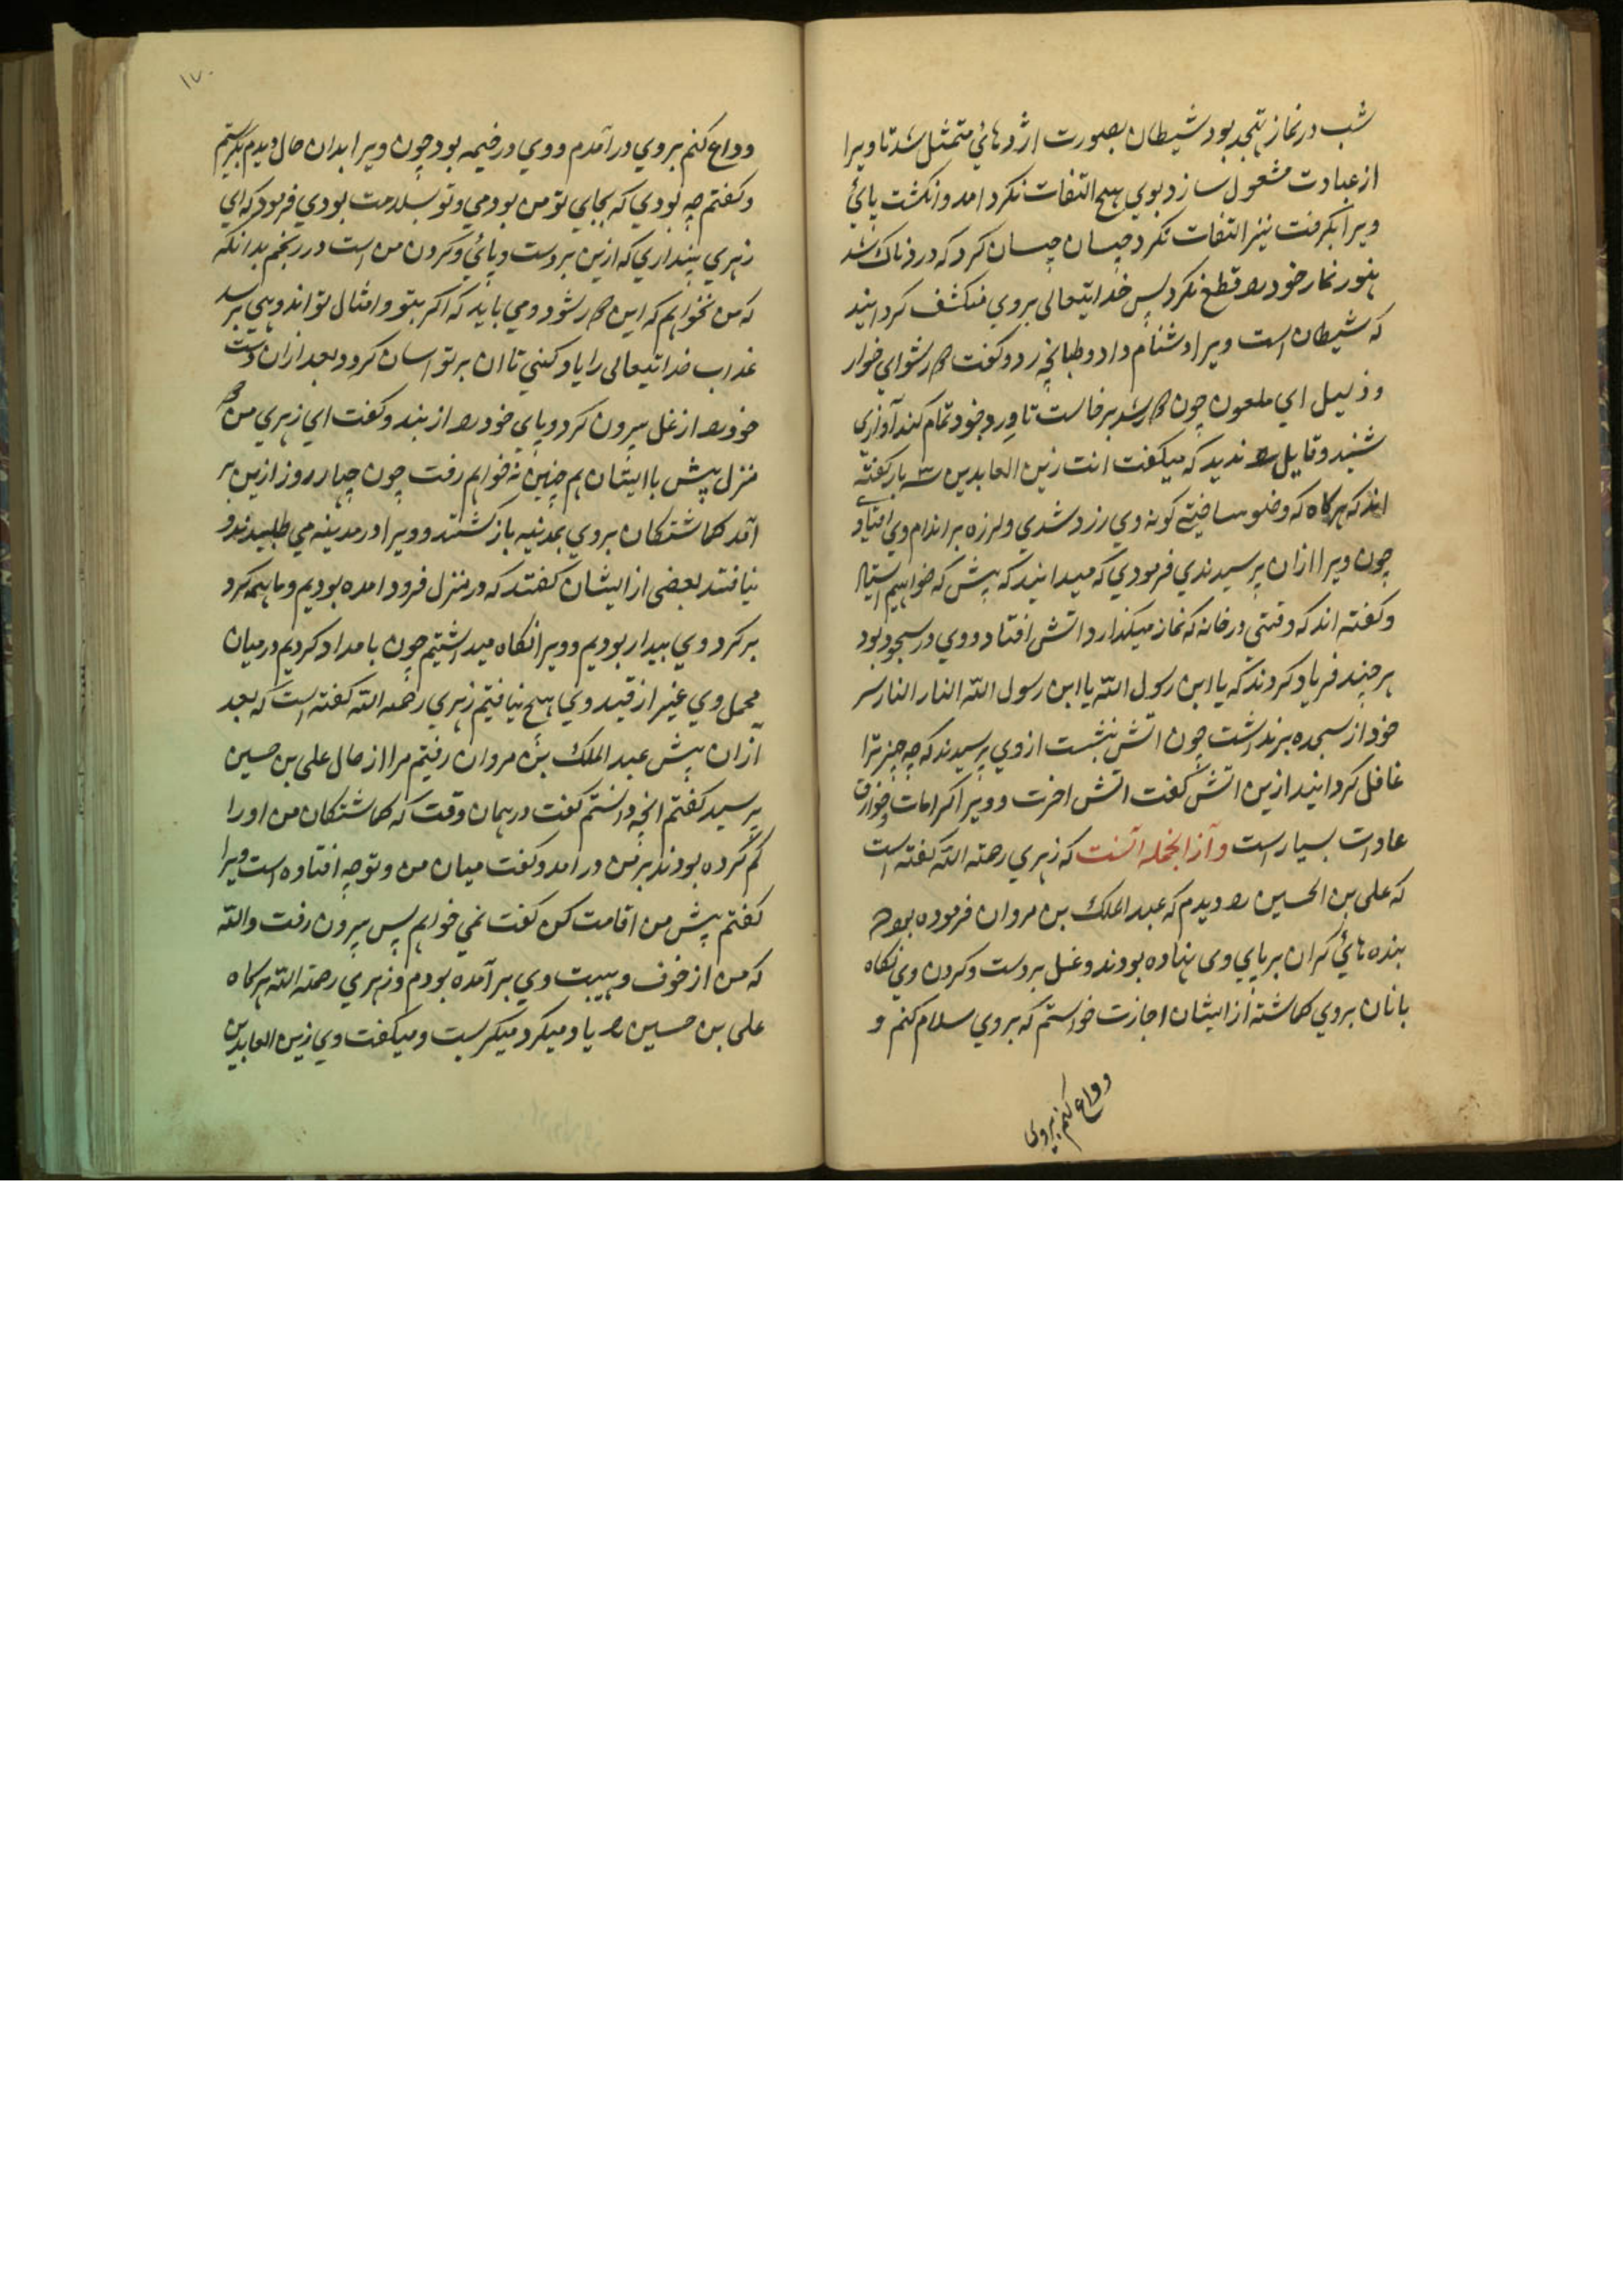 شب در نماز تهجد بود شیطان بصورت اژدهائی متمثل شد تا ویرا
از عبادت مشغول سازد بوی هیچ التفات نکرد امد و انکشت پائ
ویرا بکرفت نیز التفات نکرد چنان چنان کرد که دردناک شد
هنوز نماز خود را قطع نکرد پس خدایتعالی بروی منکشف کردانید
که شیطان است ویرا دشنام داد و طبانچه زد و کفت دور شو ای خوار
و ذلیل ای ملعون چون دور شد برخاست تا ورد خود تمام کند آوازی
شنید و قایل را ندید که میکفت انت زین العابدین سه بار کفته
اند که هرکاه که وضو ساختی کونه وی زرد شدی و لرزه بر اندام وی افتادی
چون ویرا ازان پرسیدندی فرمودی که میدانید که پیش که خواهیم استاد
و کفته اند که وقتی در خانه که نماز میکذارد اتش افتاد و وی در سجود بود
هر چند فریاد کردند که یا ابن رسول الله یا ابن رسول الله النار النار سر
خود از سجده برنداشت چون اتش بنشست از وی پرسیدند که چه چیز ترا
غافل کردانید ازین اتش کفت اتش اخرت و ویرا کرامات و خوارق
عادات بسیار است و از آنجمله آنست که زهری رحمة الله کفته است
که علی بن الحسین را دیدم که عبد الملک بن مروان فرموده بود
بنده هائ کران بر پای وی نهاده بودند و غل بر دست و کردن وی و نکاه
بانان بروی کماشته از ایشان اجازت خواستم که بروی سلام کنم و
وداع کنم بروی
۱۷۰
وداع کنم بروی درآمدم و وی در خیمه بود چون ویرا بدان حال دیدم بکریستم
و کفتم چه بودی که بجای تو من بودمی و تو بسلامت بودی فرمود که ای
زهری پنداری که ازین بر دست و پائ و کردن من است در رنجم بدانکه
که من نخواهم که این دور شود و می باید که اکر بتو و امثال تو اندوهی برسد
عذاب خدایتعالی را یاد کنی تا ان بر تو اسان کردد بعد ازان دست
خود را از غل بیرون کرد و پای خود را از بند و کفت ای زهری من دو
منزل پیش با ایشان هم چنین نخواهم رفت چون چهار روز ازین بر
آمد کماشتکان بروی بمدینه باز کشتند و ویرا در مدینه می طلبیدند و
نیافتند بعضی از ایشان کفتند که در منزل فرود امده بودیم و ما همه کرد
بر کرد وی بیدار بودیم و ویرا نکاه میداشتیم چون بامداد کردیم در میان
محمل وی غیر از قید وی هیچ نیافتیم زهری رحمه الله کفته است که بعد
ازان پیش عبد الملک بن مروان رفتم مرا از حال علی بن حسین
پرسید کفتم انچه دانستم کفت در همان وقت که کماشتکان من او را
کم کرده بودند بر من در امد و کفت میان من و تو چه افتاده است ویرا
کفتم پیش من اقامت کن کفت نمی خواهم پس بیرون رفت والله
که من از خوف و هیبت وی بر آمده بودم و زهری رحمة الله هرکاه
علی بن حسین را یاد میکرد میکریست و میکفت وی زین العابدین